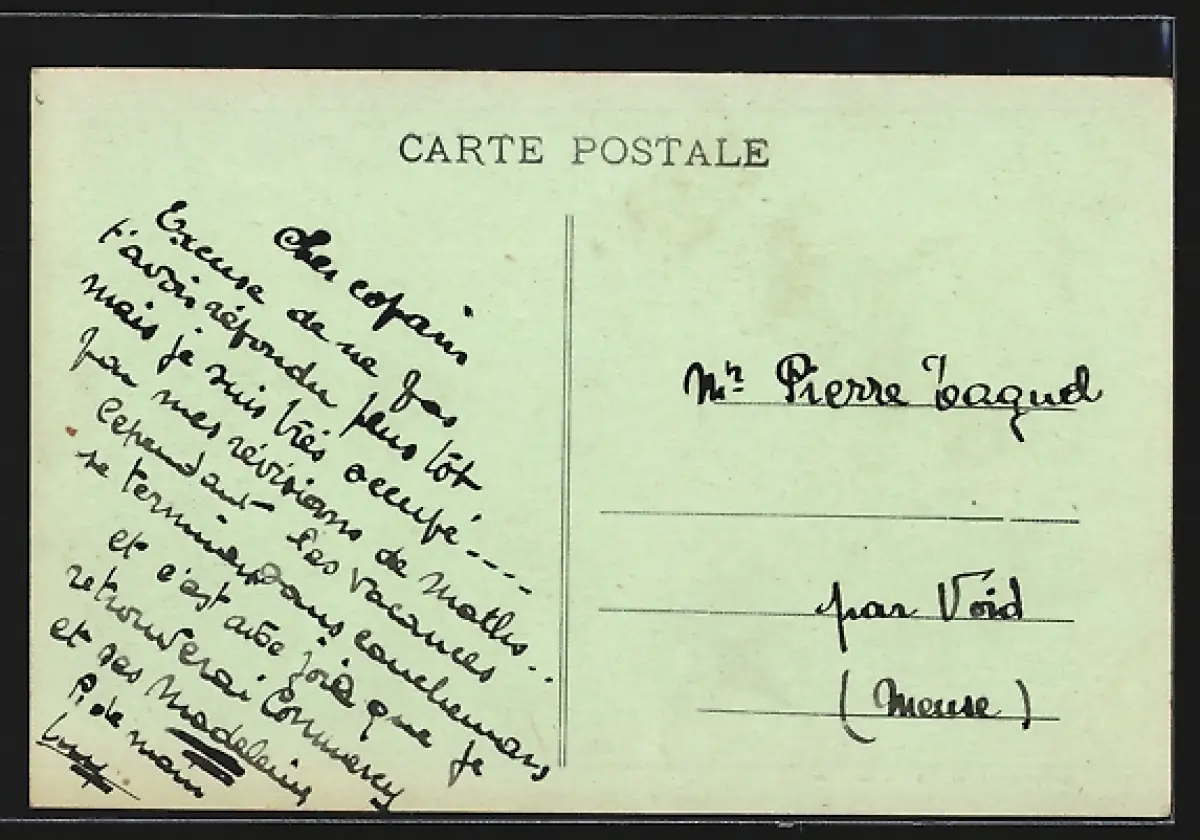 CARTE POSTALE
Cher copain
Excuse de ne pas
t'avoir répondu plus tôt
mais je suis très occupé ....
par mes révisions de maths..
Cependant les vacances
se termine sans cauchemars
et c'est avec joie que je
retrouverai Commercy
et ses Madeleines
P. de main
Mr. Pierre Taqued
par Void
(Meuse)